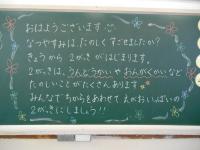 おはようございます
なつやすみは たのしく すごせましたか？
きょうから 2がっきが はじまります。
2がっきは、うんどうかいや おんがくかいなど
たのしいことが たくさんあります。
みんなで ちからをあわせて えがおいっぱいの
2がっきにしましょう!!